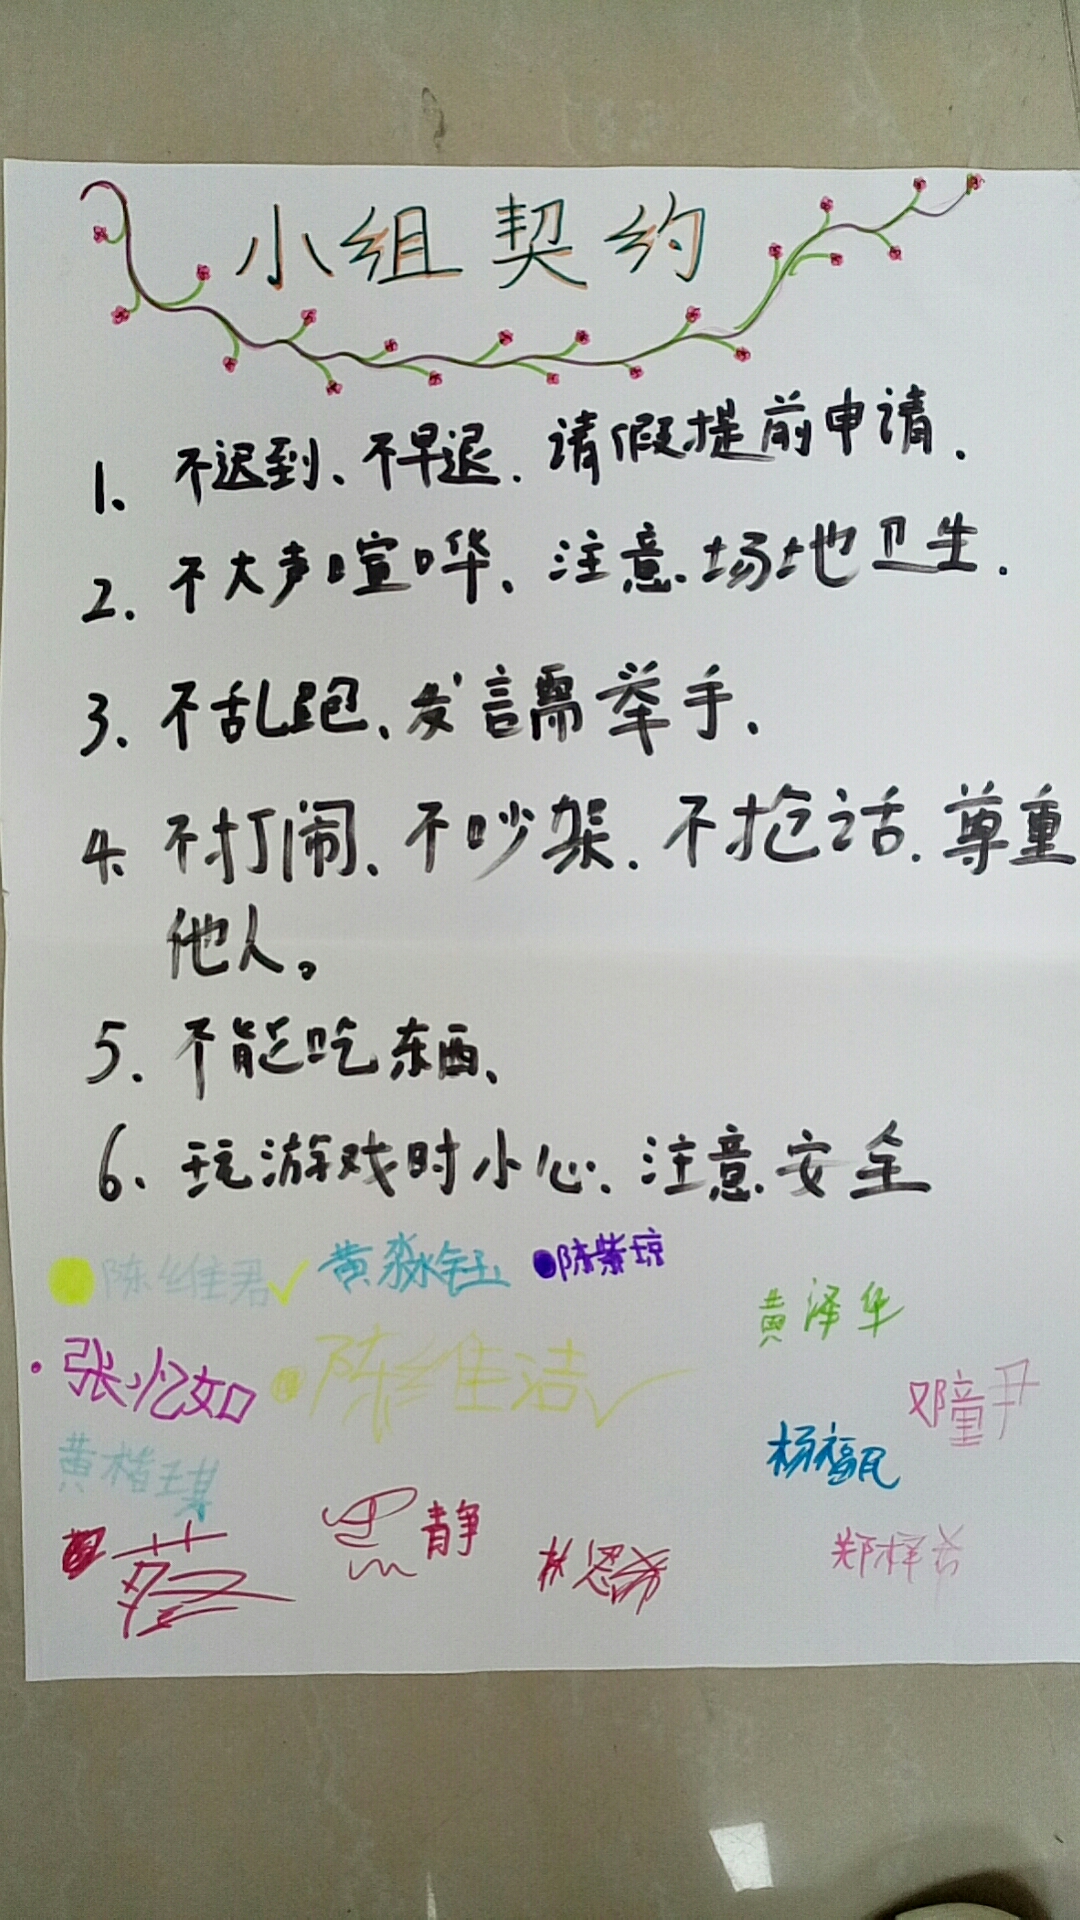 小组契约
1、不迟到、不早退.请假提前申请.
2.不大声喧哗、注意.场地卫生.
3.不乱跑、发言需举手.
4.不打闹、不吵架.不抢话.尊重
他人。
5.不能吃东西、
6、玩游戏时小心.注意.安全
陈维君 黄淼钰 陈紫琼
黄泽华
张忆如 陈维洁
邓童尹
黄楷琪 杨福民
静 林恩希 郑梓